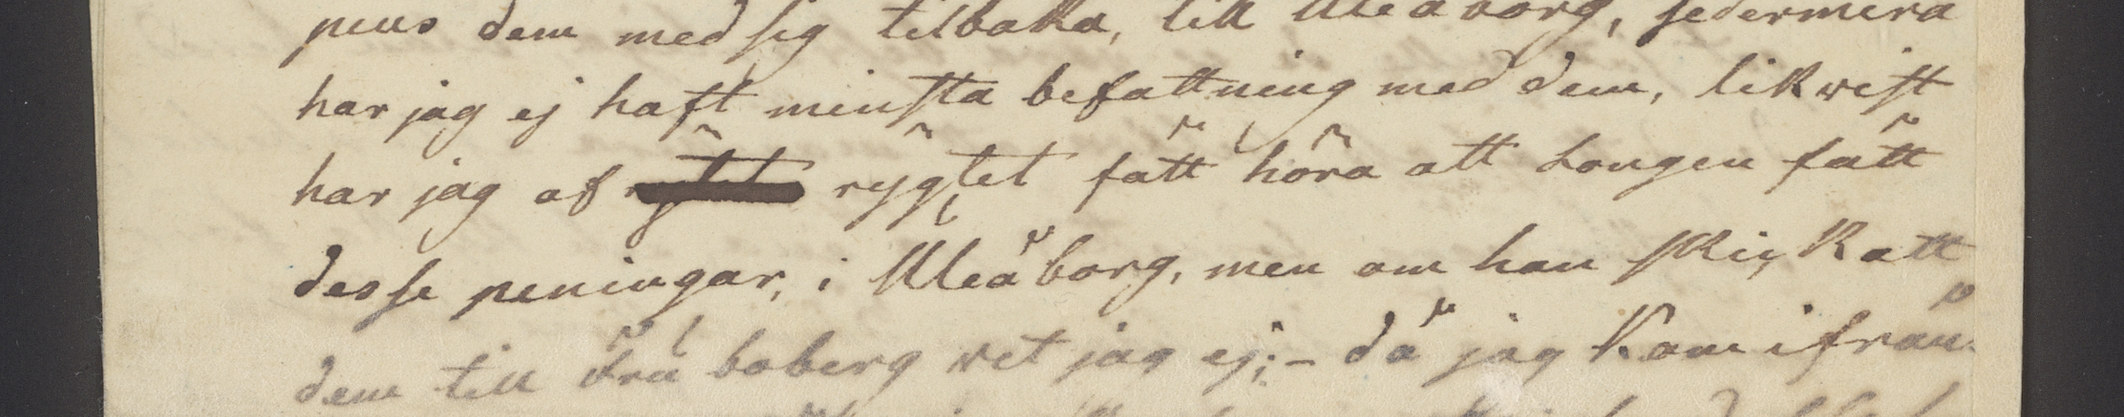 dem med sig tilbaka, till Uleåborg, sedermera
har jag ej haft minsta befattning med dem, likwist
har jag af rygtet fått höra att Longen fått
desse peningar, i Uleåborg, men om han skickatt
dem till fru boberg vet jag ej; - då jag kom ifrån